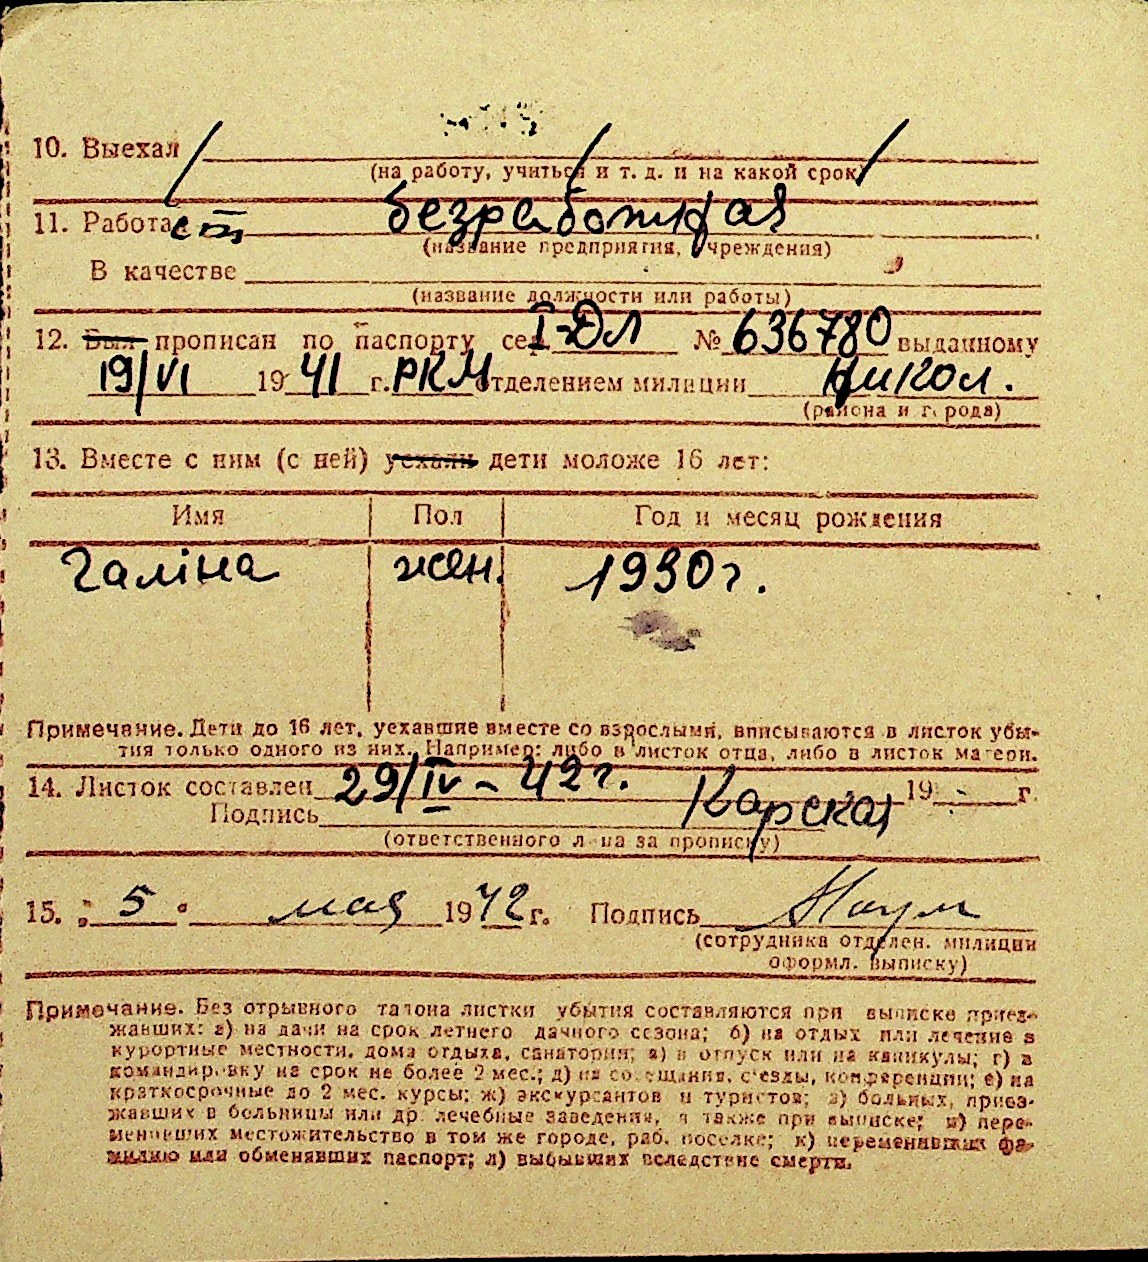 10. Выехал
(на работу, учиться и т. д. и на какой срок)
11. Работает безработная
(название предприятия, учреждения)
В качестве
(название должности или работы)
12. Был прописан по паспорту сер. I-ДЛ № 636780 выданному
19/VI 1941 г. РКМ отделением милиции Никол.
(района и города)
13. Вместе с ним (с ней) уехали дети моложе 16 лет:
Имя Пол Год и месяц рождения
Галіна жен. 1930 г.
Примечание. Дети до 16 лет, уехавшие вместе со взрослыми, вписываются в листок убы-
тия только одного из них. Например: либо в листок отца, либо в листок матери.
14. Листок составлен 29/IV - 42 г. 19 г.
Подпись Карская
(ответственного лица за прописку)
15. „5" мая 1942 г. Подпись Наум
(сотрудника отделен. милиции
оформл. выписку)
Примечание. Без отрывного талона листки убытия составляются при выписке приез-
жавших: а) на дачи на срок летнего дачного сезона; б) на отдых или лечение в
курортные местности, дома отдыха, санатории; в) в отпуск или на каникулы; г) в
командировку на срок не более 2 мес.; д) на совещания, с'езды, конференции; е) на
краткосрочные до 2 мес. курсы; ж) экскурсантов и туристов; з) больных, приез-
жавших в больницы или др. лечебные заведения, а также при выписке; и) пере-
менивших местожительство в том же городе, раб. поселке; к) переменивших фа-
милию или обменявших паспорт; л) выбывших вследствие смерти.